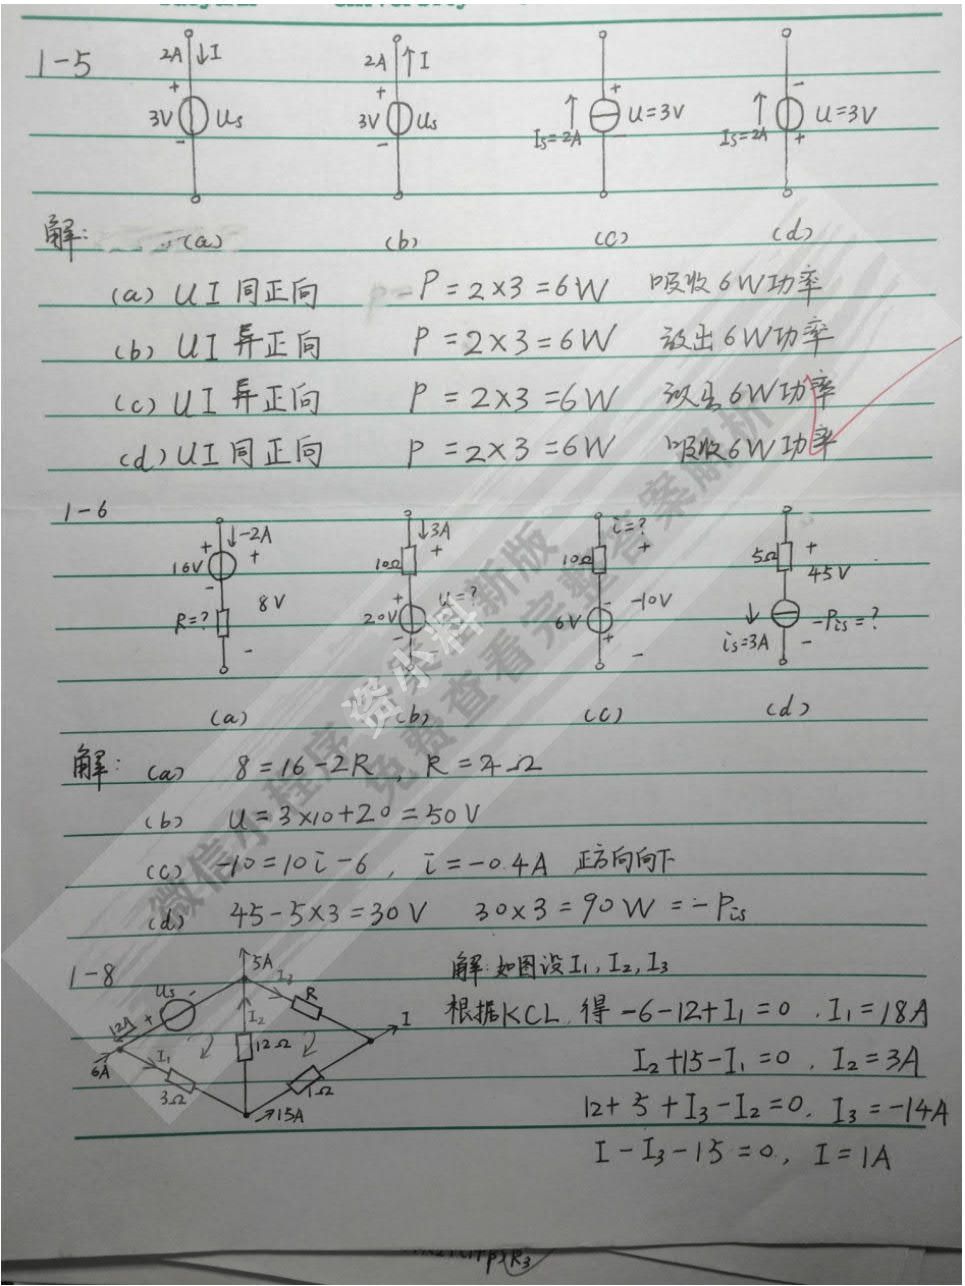 1-5
2A ↓I
+
3V Us
-
2A ↑I
+
3V Us
-
↑ + U=3V
Is=2A
↑ - U=3V
Is=2A +
解: (a) (b) (c) (d)
(a) U I 同正向 P=2×3=6W 吸收6W功率
(b) U I 异正向 P=2×3=6W 放出6W功率
(c) U I 异正向 P=2×3=6W 放出6W功率
(d) U I 同正向 P=2×3=6W 吸收6W功率
1-6
↓-2A
+ +
16V
-
8V
R=?
-
↓3A
+
10Ω
+ U=?
20V
- -
i=?
+
10Ω
- -10V
6V
+ -
5Ω +
45V
↓ -Pis=?
is=3A -
(a) (b) (c) (d)
解: (a) 8=16-2R, R=4Ω
(b) U=3×10+20=50V
(c) -10=10i-6, i=-0.4A 正方向向下
(d) 45-5×3=30V 30×3=90W=-Pis
1-8
5A
Us I3 R
12A + I2 I
12Ω
6A I1
3Ω 1Ω
15A
解:如图设I1,I2,I3
根据KCL,得 -6-12+I1=0, I1=18A
I2+15-I1=0, I2=3A
12+5+I3-I2=0, I3=-14A
I-I3-15=0, I=1A
资小料
微信小程序 最新版
免费查看完整答案解析